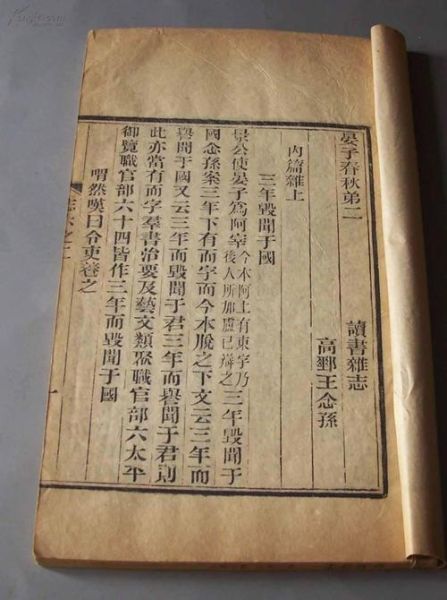 晏子春秋弟二　讀書雜志
高郵王念孫
内篇雜上
三年毀聞于國
景公使晏子爲阿宰今本阿上有東字乃後人所加盧已辯之三年毀聞于
國念孫案三年下有而字而今本脫之下文云三年而
譽聞于國又云三年而毀聞于君三年而譽聞于君則
此亦當有而字羣書治要及藝文類聚職官部六太平
御覽職官部六十四皆作三年而毀聞于國
喟然嘆曰令吏養之